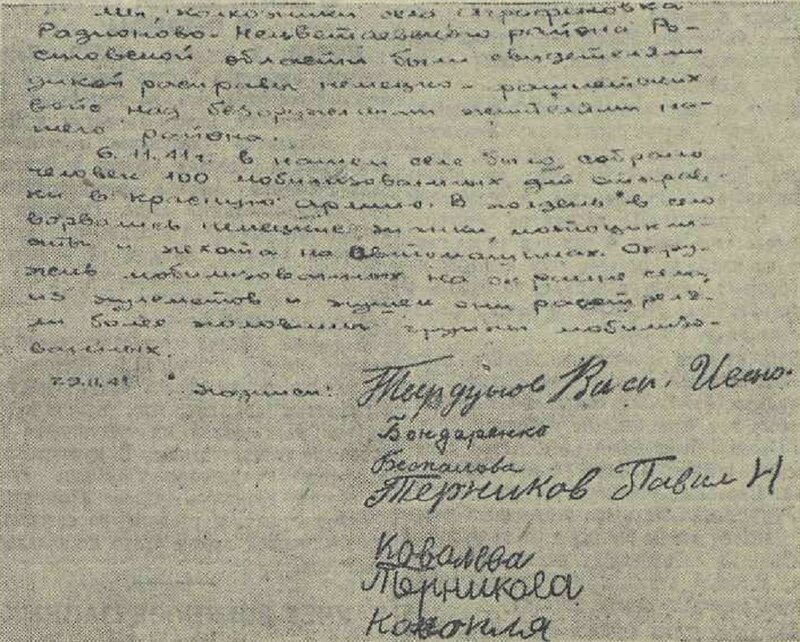 Мы, колхозники села Аграфеновка
Радионово-Несветаевского района Ро-
стовской области были свидетелями
дикой расправы немецко-фашистских
войс над безоружными жителями на-
шего района.
6.11.41 г. в нашем селе было собрано
человек 100 мобилизованных для отправ-
ки в красную армию. В полдень в село
ворвались немецкие танки, мотоцикли-
сты и пехота на автомашинах. Окру-
жель мобилизованных на окраине села,
из пулеметов и пушек они расстреля-
ли более половины группы мобилизо-
ванных.
22.11.41 подписи: Васи. Ивано.
Бондаренко
Беспалова
Терников Павил Н
Ковалева
Терникова